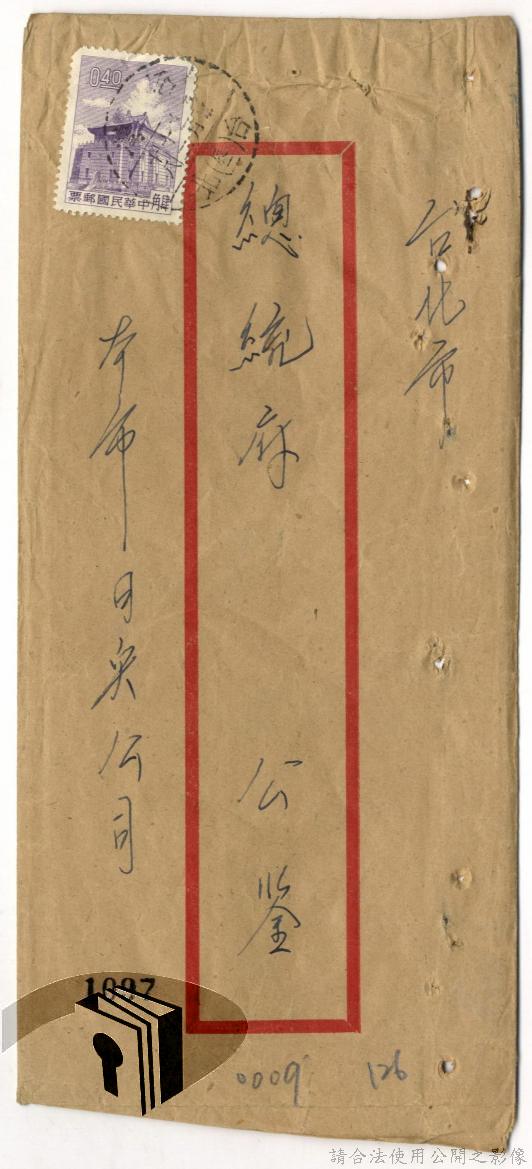 台北市
總統府 公鑒
本市日央公司
0.40
票郵國民華中
1097
0009
126
請合法使用公開之影像